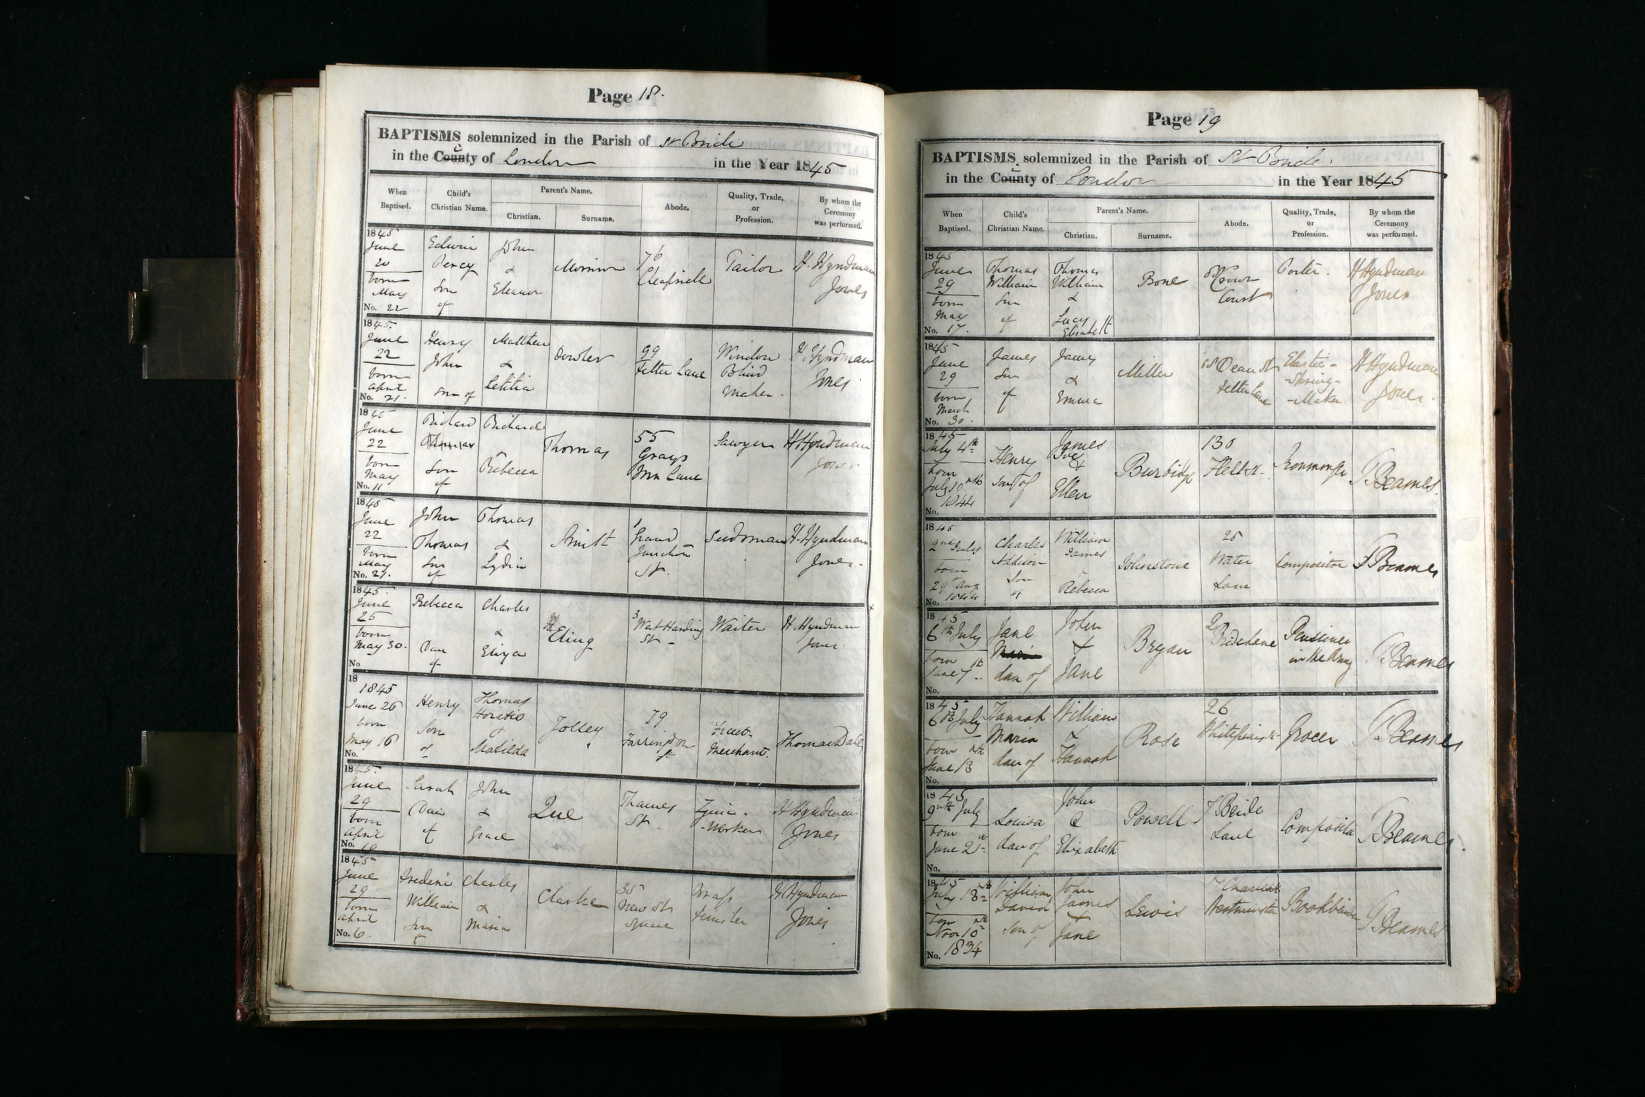 Page 18.
BAPTISMS solemnized in the Parish of St Bride
in the County of London in the Year 1845
When Baptised. Child's Christian Name. Parent's Name. Christian. Surname. Abode. Quality, Trade, or Profession. By whom the Ceremony was performed.
1845 June 20 born May No. 22 Edwin Percy Son of John & Eleanor 76 Tailor H. Hyndman Jones
1845. June 22 born april No. 21. Henry John Son of Matthew & Letitia Dowler 99 Fetter Lane Window Blind Maker. H. Hyndman Jones
1845 June 22 born May No. 11 Richard Thomas Son of Richard & Rebecca Thomas 55 Grays Inn Lane Sawyer H Hyndman Jones
1845 June 22 born May No. 21. John Thomas Son of Thomas & Lydia Smith Grand Junction St. H. Hyndman Jones.
1845. June 25 born May 30. No. Rebecca Dau of Charles & Eliza Eling 3 West Harding St. Waiter H Hyndman Jones
18 1845 June 26 born May 16 No. Henry Son of Thomas & Matilda Jolley 79 Farringdon St Fruit Merchant. Thomas Dale
1845. June 29 born April No. 18 Sarah Dau of John & Grace Que Thames St. H Hyndman Jones
1845 June 29 born april No. 6. Frederic William Son of Charles & Maria Clarke 35 New St Square Brass finisher H Hyndman Jones
Page 19
BAPTISMS solemnized in the Parish of St Bride.
in the County of London in the Year 1845
When Baptised. Child's Christian Name. Parent's Name. Christian. Surname. Abode. Quality, Trade, or Profession. By whom the Ceremony was performed.
1845 June 29 born May No. 17. Thomas William Son of Thomas William & Lucy Elizabeth Bone Crown Court Porter. H Hyndman Jones
1845 June 29 born March No. 30. James Son of James & Emma Miller Dean St Fetter Lane Elastic-Spring-Maker H Hyndman Jones.
1845 July 4th born July 10th 1844 No. Henry Son of James & Ellen Burbidge 130 Fleet St. Ironmonger T. Beames.
1845 2nd July born 29th Aug 1844 No. Charles Addison Son of William James & Rebecca Johnstone 25 Water Lane Compositor T Beames
1845 6th July born June 7th No. Jane dau of John & Jane Bryan Bride Lane Pensioner in the Army T. Beames
1845 6th July born June 13th No. Hannah Maria dau of William & Hannah Rose 26 Whitefriars St Grocer T. Beames
1845 9th July born June 21st No. Louisa dau of John & Elizabeth Powell Bride Lane Compositor T Beames.
1845 July 13th born Novr 10th No. 1834 William David Son of John James & Jane Lewis Westminster Bookbinder T Beames